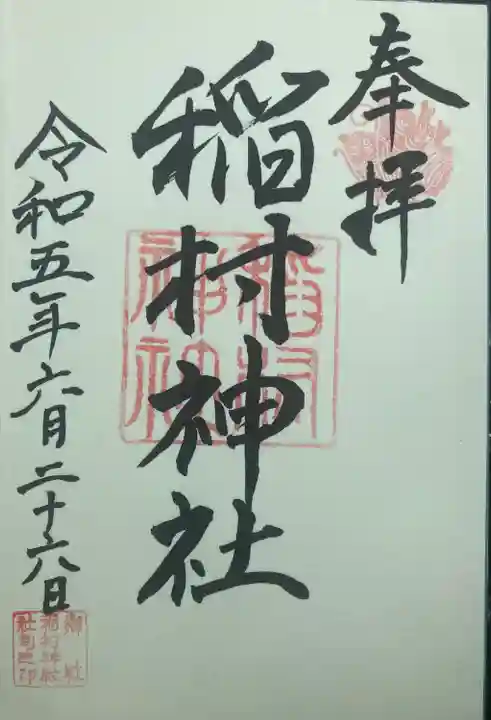 奉拝
稲村神社
令和五年六月二十六日
稲村
神社